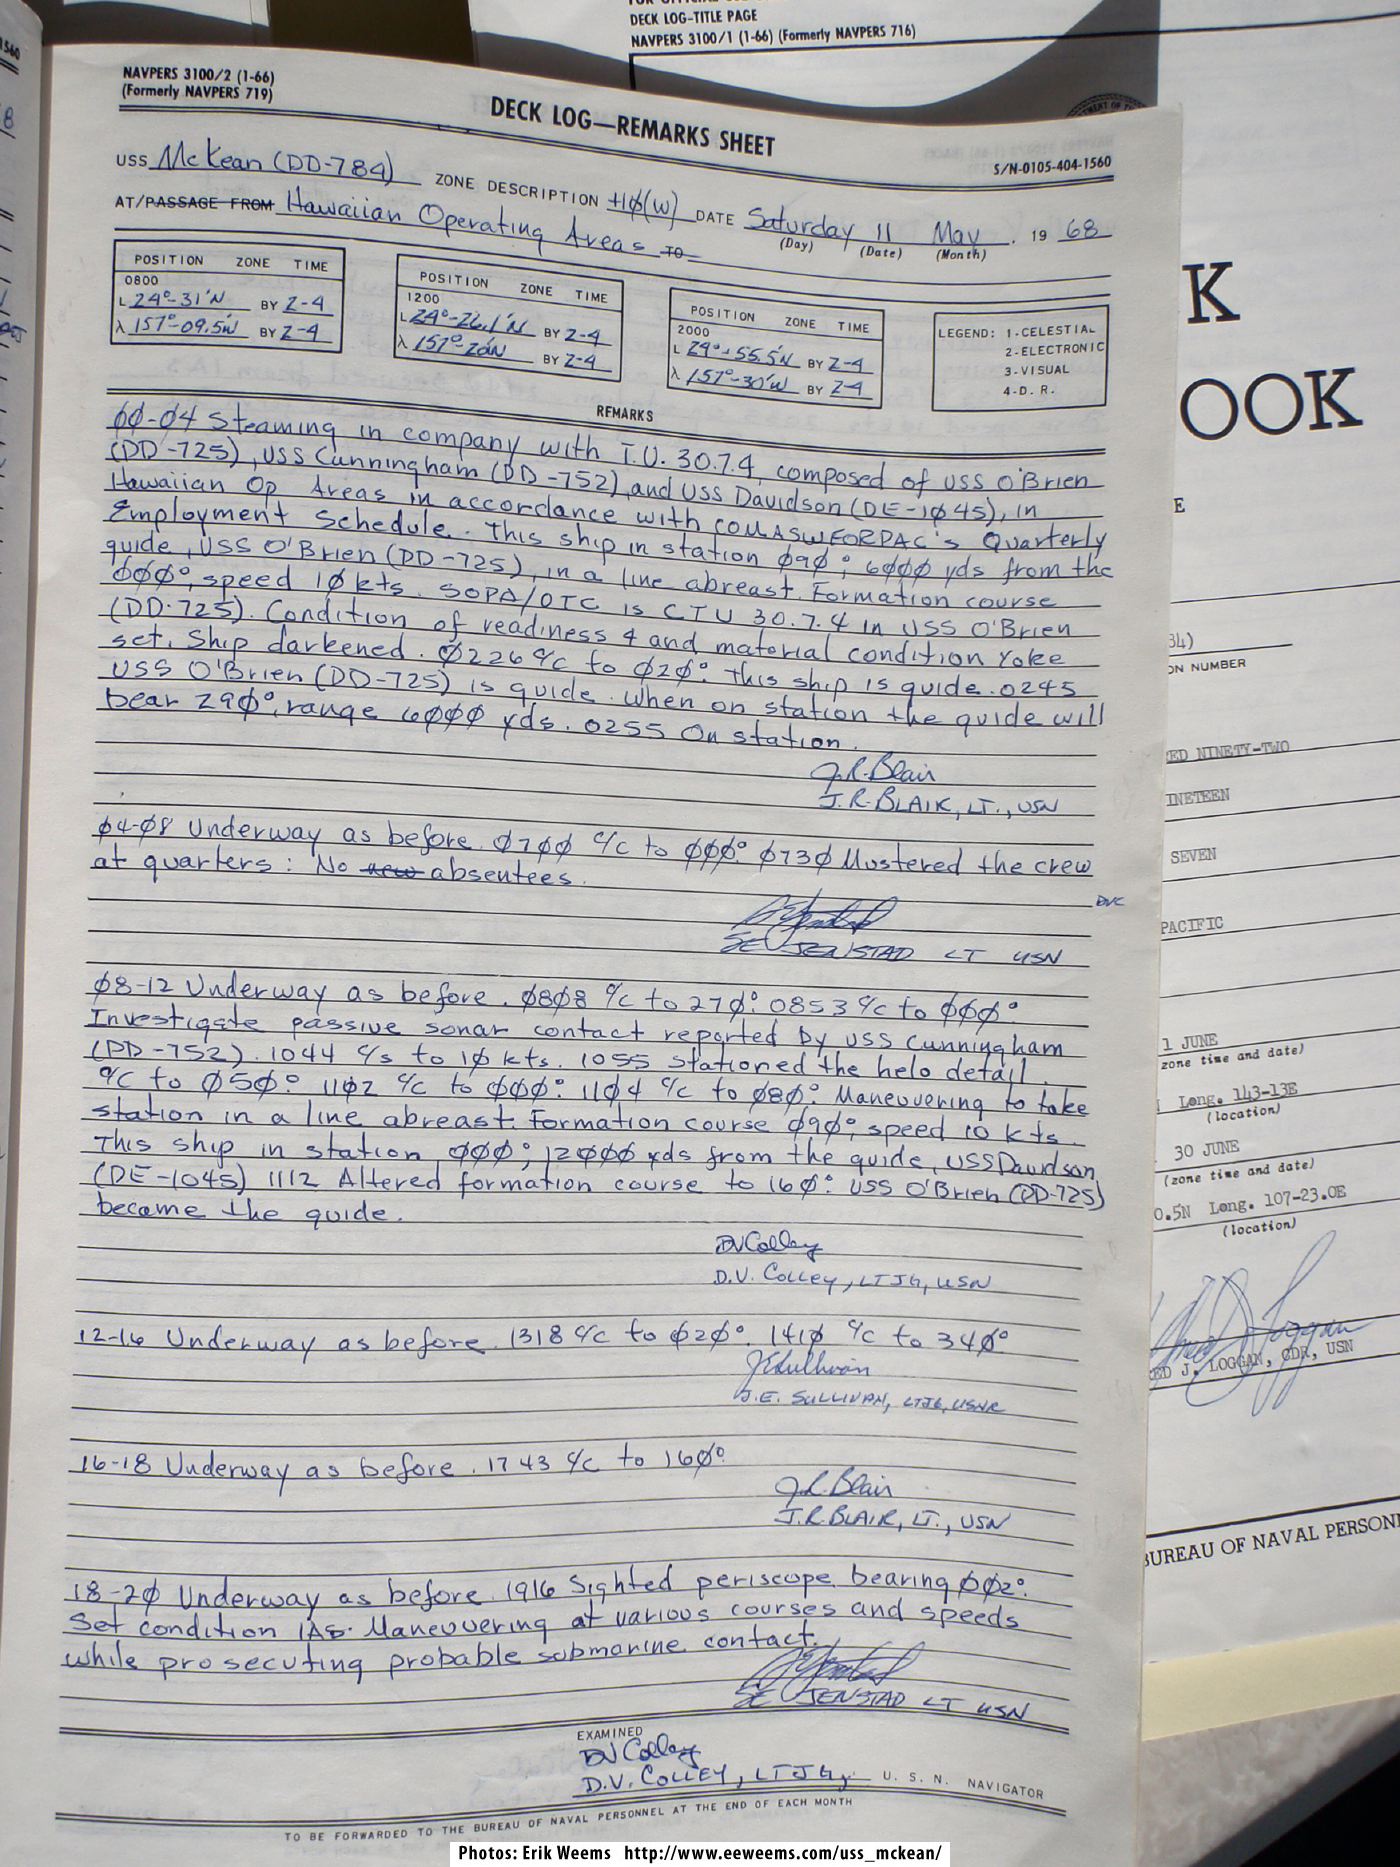 DECK LOG-TITLE PAGE
NAVPERS 3100/1 (1-66) (Formerly NAVPERS 716)
NAVPERS 3100/2 (1-66)
(Formerly NAVPERS 719)
DECK LOG—REMARKS SHEET
S/N-0105-404-1560
USS McKean (DD-784) ZONE DESCRIPTION +1Ø(W) DATE Saturday 11 May, 19 68
(Day) (Date) (Month)
AT/PASSAGE FROM Hawaiian Operating Areas TO
POSITION ZONE TIME
0800
L 24°-31'N BY 2-4
λ 157°-09.5'W BY 2-4
POSITION ZONE TIME
1200
L 24°-26.1'N BY 2-4
λ 157°-20'W BY 2-4
POSITION ZONE TIME
2000
L 24°-55.5'N BY 2-4
λ 157°-30'W BY 2-4
LEGEND: 1-CELESTIAL
2-ELECTRONIC
3-VISUAL
4-D. R.
REMARKS
ØØ-Ø4 Steaming in company with T.U. 30.7.4, composed of USS O'Brien
(DD-725), USS Cunningham (DD-752), and USS Davidson (DE-1Ø45), in
Hawaiian Op Areas in accordance with COMASWFORPAC's Quarterly
Employment Schedule. This ship in station Ø9Ø°, 6ØØØ yds from the
guide, USS O'Brien (DD-725), in a line abreast. Formation course
ØØØ°, speed 1Ø kts. SOPA/OTC is CTU 30.7.4 in USS O'Brien
(DD-725). Condition of readiness 4 and material condition Yoke
set. Ship darkened. Ø226 c/c to Ø2Ø°. This ship is guide. 0245
USS O'Brien (DD-725) is guide. When on station the guide will
bear 29Ø°, range 6ØØØ yds. 0255 On station.
J.R. Blair
J.R. BLAIR, LT., USN
Ø4-Ø8 Underway as before. Ø7ØØ c/c to ØØØ°. Ø73Ø Mustered the crew
at quarters: No new absentees.
DVC
JENSTAD LT USN
Ø8-12 Underway as before. Ø8Ø8 c/c to 27Ø°. 0853 c/c to ØØØ°.
Investigate passive sonar contact reported by USS Cunningham
(DD-752). 1044 c/s to 1Ø kts. 1055 Stationed the helo detail.
c/c to Ø5Ø°. 11Ø2 c/c to ØØØ°. 11Ø4 c/c to Ø8Ø°. Maneuvering to take
station in a line abreast. Formation course Ø9Ø°, speed 10 kts.
This ship in station ØØØ°, 12ØØØ yds from the guide, USS Davidson
(DE-1045) 1112 Altered formation course to 16Ø°. USS O'Brien (DD-725)
became the guide.
DV Colley
D.V. COLLEY, LTJG, USN
12-16 Underway as before. 1318 c/c to Ø2Ø°. 141Ø c/c to 34Ø°
JESullivan
J.E. SULLIVAN, LTJG, USNR
16-18 Underway as before. 1743 c/c to 16Ø°.
J.R. Blair
J.R. BLAIR, LT., USN
18-2Ø Underway as before. 1916 Sighted periscope bearing ØØ2°.
Set condition 1AS. Maneuvering at various courses and speeds
while prosecuting probable submarine contact.
JENSTAD LT USN
EXAMINED
DV Colley
D.V. COLLEY, LTJG, U. S. N. NAVIGATOR
TO BE FORWARDED TO THE BUREAU OF NAVAL PERSONNEL AT THE END OF EACH MONTH
K
OOK
E
34)
ON NUMBER
ED NINETY-TWO
INETEEN
SEVEN
PACIFIC
1 JUNE
zone time and date)
Long. 143-13E
(location)
30 JUNE
(zone time and date)
0.5N Long. 107-23.0E
(location)
ED J. LOGGAN, CDR, USN
BUREAU OF NAVAL PERSONN
Photos: Erik Weems http://www.eeweems.com/uss_mckean/